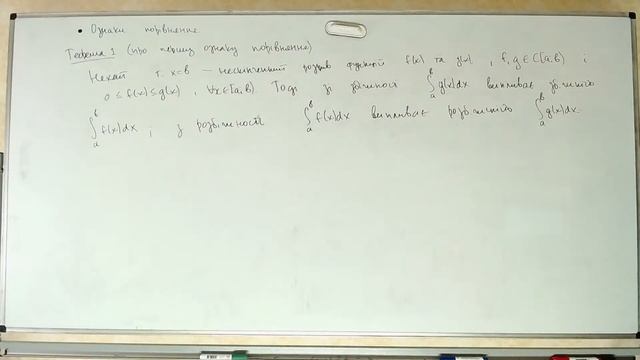 • Ознаки порівняння.
Теорема 1 (про першу ознаку порівняння)
Нехай т. x=b — нескінченний розрив функцій f(x) та g(x), f, g ∈ C[a,b) і
0 ≤ f(x) ≤ g(x), ∀x∈[a,b). Тоді зі збіжності ∫_a^b g(x)dx випливає збіжність
∫_a^b f(x)dx, і з розбіжності ∫_a^b f(x)dx випливає розбіжність ∫_a^b g(x)dx.